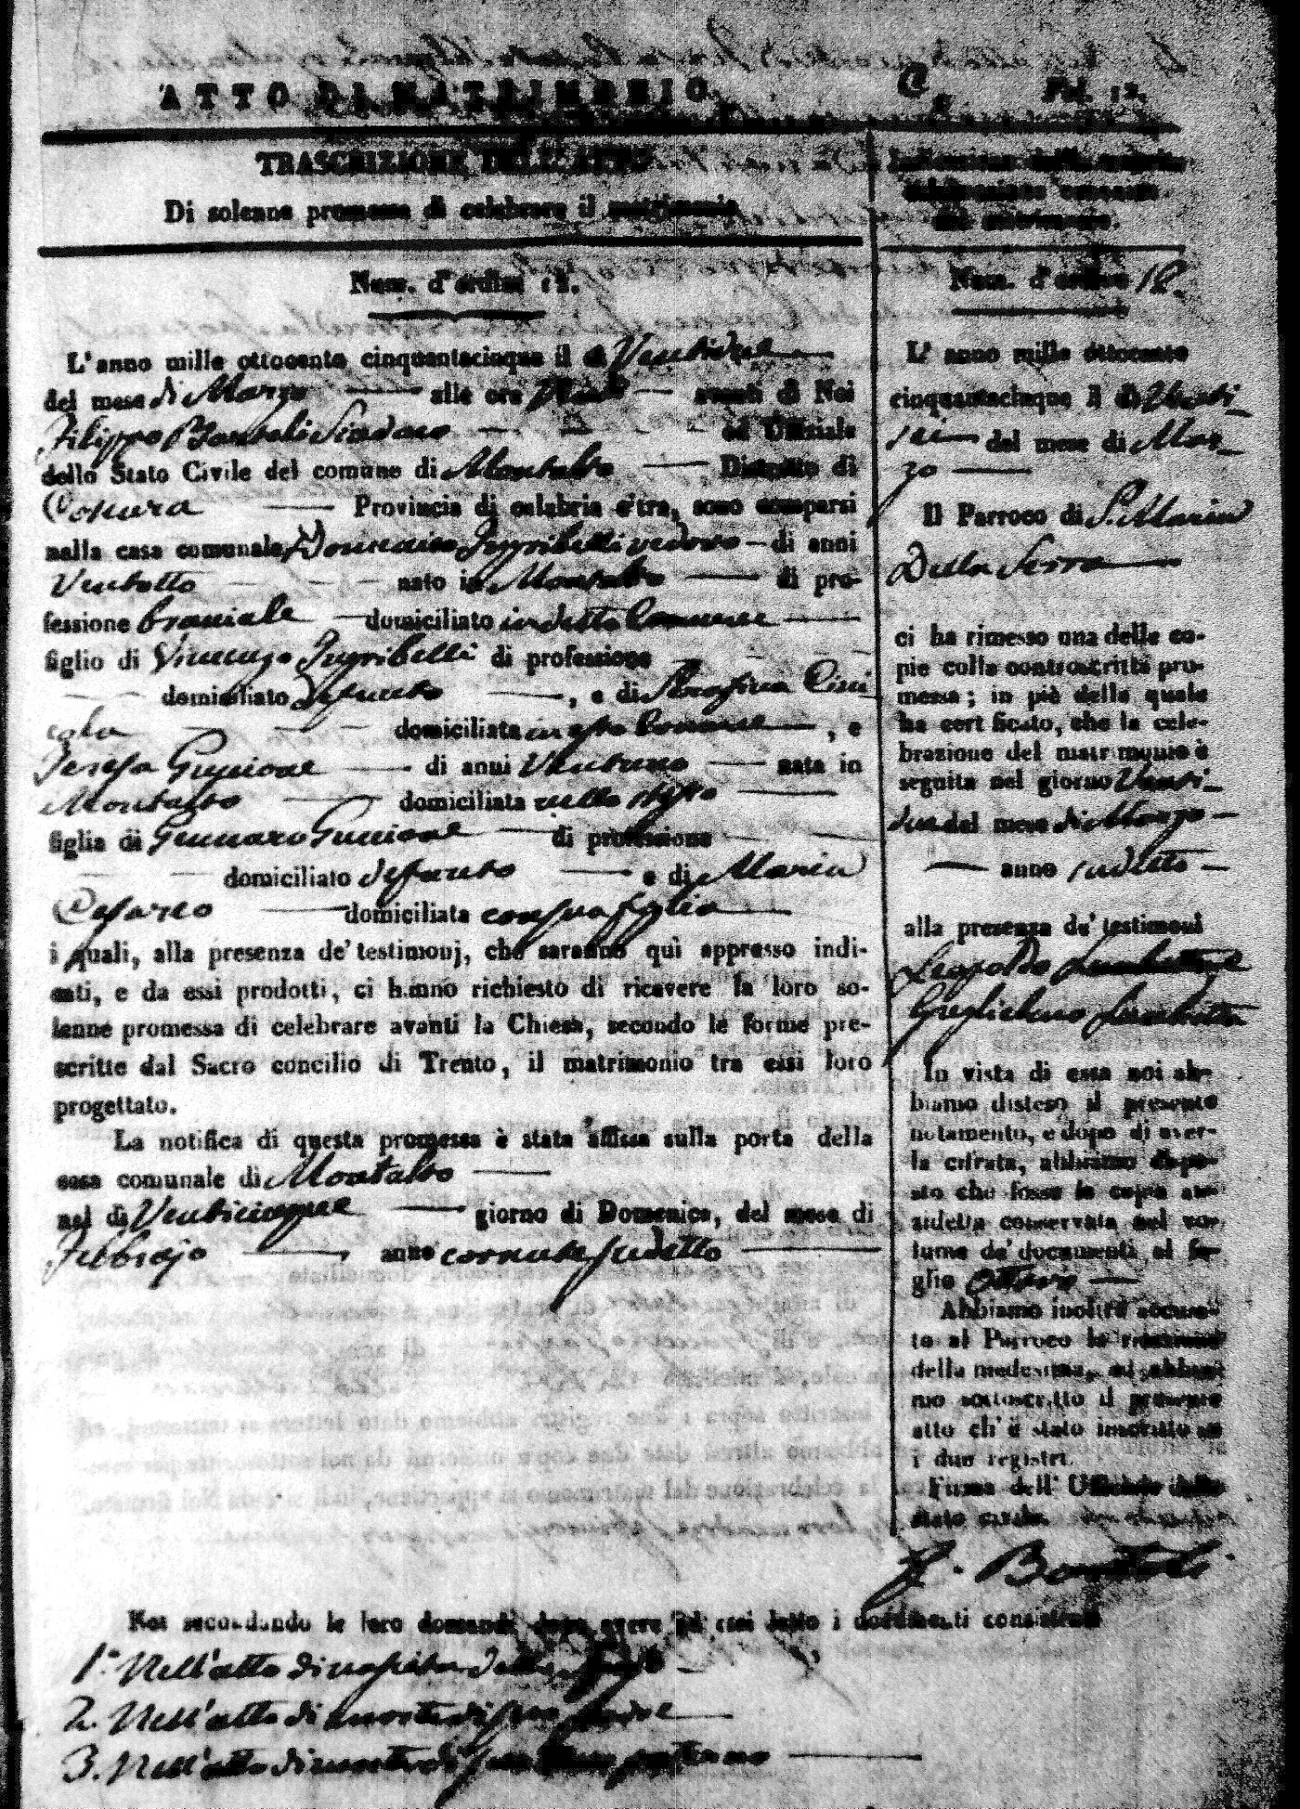 ATTO DI MATRIMONIO
Fol. 12.
TRASCRIZIONE DELL' ATTO
Di solenne promessa di celebrare il matrimonio
Num. d'ordine 12.
L'anno mille ottocento cinquantacinque il dì Ventidue
del mese di Marzo alle ore avanti di Noi
Filippo Bontali Sindaco ed Uffiziale
dello Stato Civile del comune di Montalto Distretto di
Cosenza Provincia di calabria citra, sono comparsi
nella casa comunale Domenico Ingribelli vedovo di anni
Ventotto nato in Montalto di pro-
fessione braciale domiciliato in detto Comune
figlio di Vincenzo Ingribelli di professione
domiciliato defunto , e di Serafina
domiciliata in esso Comune , e
Teresa Guccione di anni Ventuno nata in
Montalto domiciliata nello stesso
figlia di Gennaro Guccione di professione
domiciliato defunto e di Maria
Cesareo domiciliata con sua figlia
i quali, alla presenza de' testimonj, che saranno quì appresso indi-
cati, e da essi prodotti, ci hanno richiesto di ricevere la loro so-
lenne promessa di celebrare avanti la Chiesa, secondo le forme pre-
scritte dal Sacro concilio di Trento, il matrimonio tra essi loro
progettato.
La notifica di questa promessa è stata affissa sulla porta della
casa comunale di Montalto
nel dì Venticinque giorno di Domenica, del mese di
Febbrajo anno corrente sudetto
del matrimonio.
Num. d'ordine 12.
L' anno mille ottocento
cinquantacinque il dì Venti-
sei del mese di Mar-
zo
Il Parroco di S. Maria
Della Serra
ci ha rimesso una delle co-
pie colla controscritta pro-
messa; in piè della quale
ha certificato, che la cele-
brazione del matrimonio è
seguita nel giorno Venti-
due del mese di Marzo
anno sudetto
alla presenza de' testimoni
Leopoldo
Guglielmo
In vista di essa noi ab-
biamo disteso il presente
notamento, e dopo di aver-
la cifrata, abbiamo dispo-
sto che fosse la copia an-
zidetta conservata nel vo-
lume de' documenti al fo-
glio ottavo
Abbiamo inoltre accusa-
to al Parroco la ricezione
della medesima, ed abbia-
mo sottoscritto il presente
atto ch' è stato inscritto su
i due registri.
Firma dell' Uffiziale dello
stato civile.
F. Bontali
Noi secondando le loro domande dopo avere ad essi letto i documenti consistenti
1.° Nell'atto di nascita della sposa
2. Nell'atto di morte di suo padre
3. Nell'atto di morte di paterno